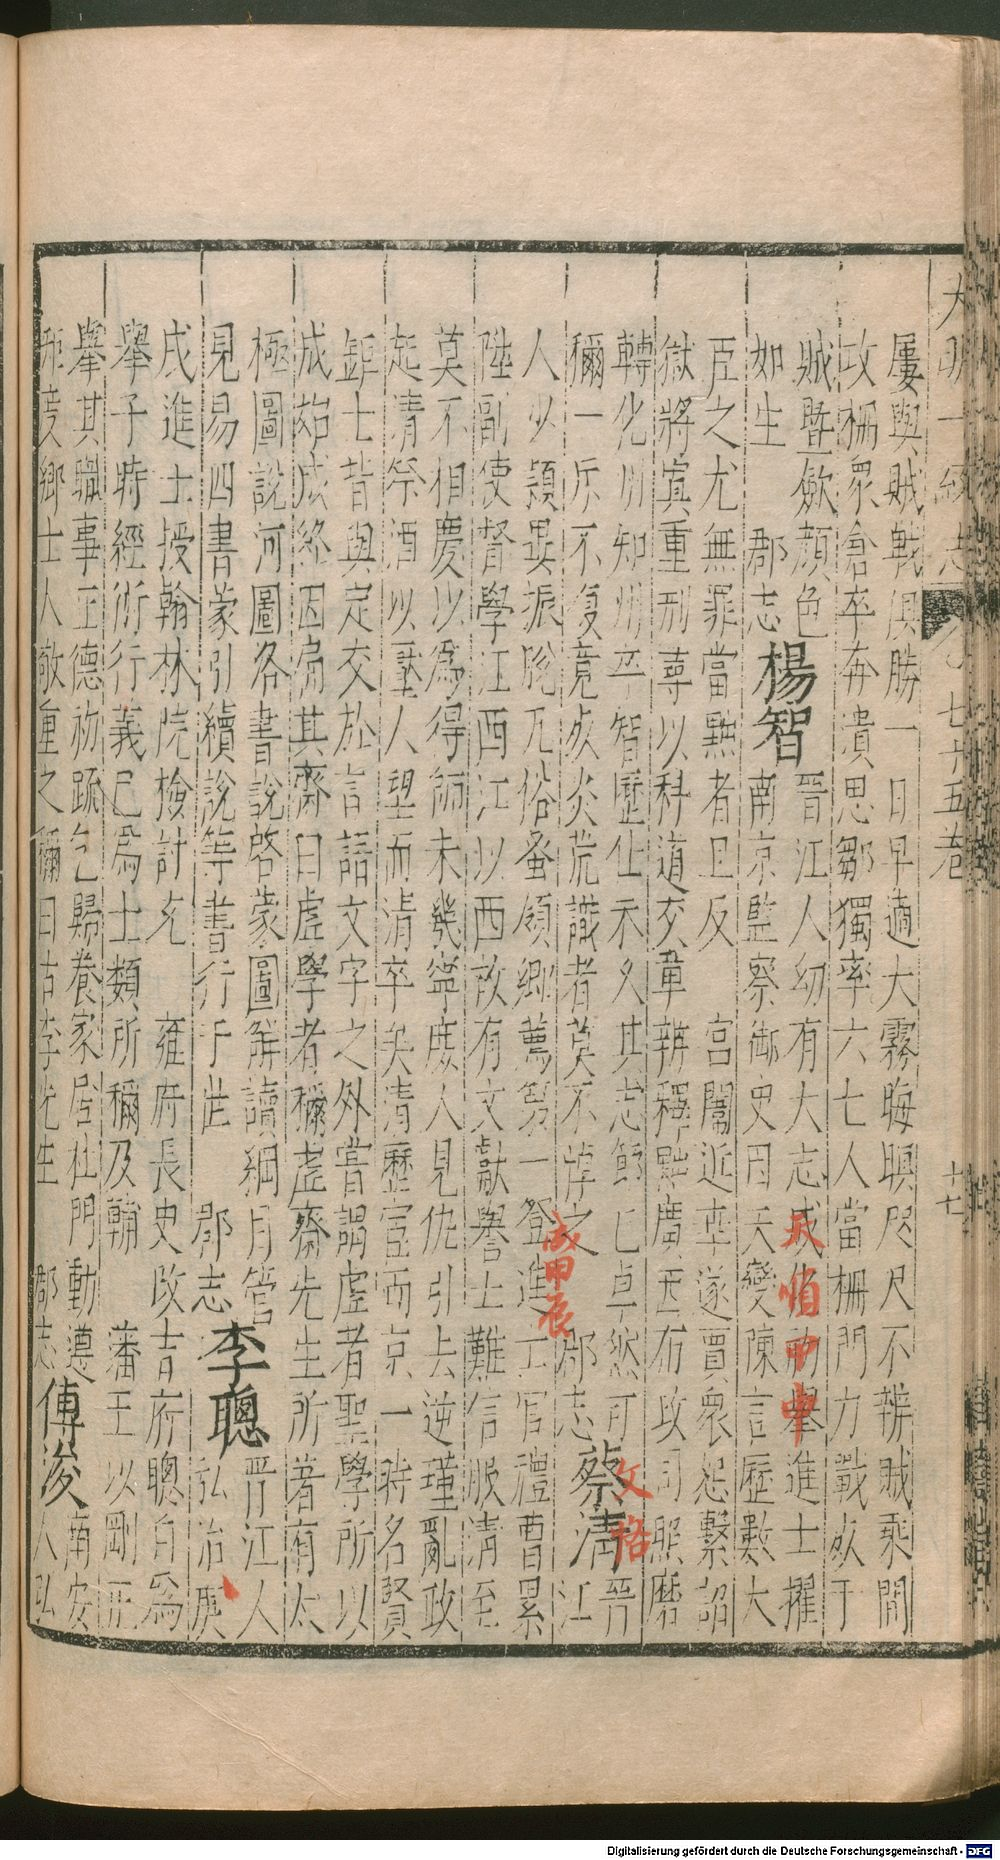 大明一統志 七十五卷 十七
屢與賊戰俱勝一日早適大霧晦暝咫尺不辨賊乘間
攻柵衆倉卒奔潰思鄒獨率六七人當柵門力戰死于
賊暨歛顏色
如生 郡志
楊智
晉江人幼有大志成化初舉進士擢
南京監察御史因天變陳言歷數大
臣之尤無罪當黜者且反 宮闈近幸遂買衆怨繫詔
獄將寘重刑尋以科道交章辨釋黜廣西布政司照磨
轉化州知州卒智歷仕未久其志節已卓然可
稱一斥不復竟死炎荒識者莫不悼之 郡志
蔡清
晉江
人少穎異振脫凡俗蚤領鄉薦第一登進士官禮曹累
陞副使督學江西江以西故有文獻譽士難信服清至
莫不相慶以爲得師未幾寧庶人見仇引去逆瑾亂政
起清祭酒以壓人望而清卒矣清歷官兩京一時名賢
鉅士皆與定交於言語文字之外嘗謂虛者聖學所以
成始成終因扁其齋曰虛學者稱虛齋先生所著有太
極圖說河圖洛書說啓蒙圖解讀綱目管
見易四書蒙引續說等書行于世 郡志
李聰
晉江人
弘治庚
戌進士授翰林院檢討充 雍府長史改吉府聰自爲
舉子時經術行義已爲士類所稱及輔 藩王以剛正
舉其職事正德初疏乞歸養家居杜門動遵
矩度鄉士人敬重之稱曰古李先生 郡志
傅浚
南安
人弘
天順甲申
文恪
成甲辰
Digitalisierung gefördert durch die Deutsche Forschungsgemeinschaft - DFG